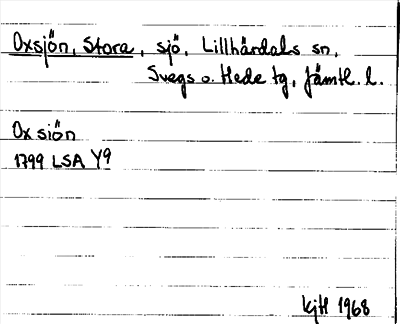 Oxsjön, Stora, sjö, Lillhärdals sn,
Svegs o. Hede tg, Jämtl. l.
Oxsiön
1799 LSA Y9
KjH 1968